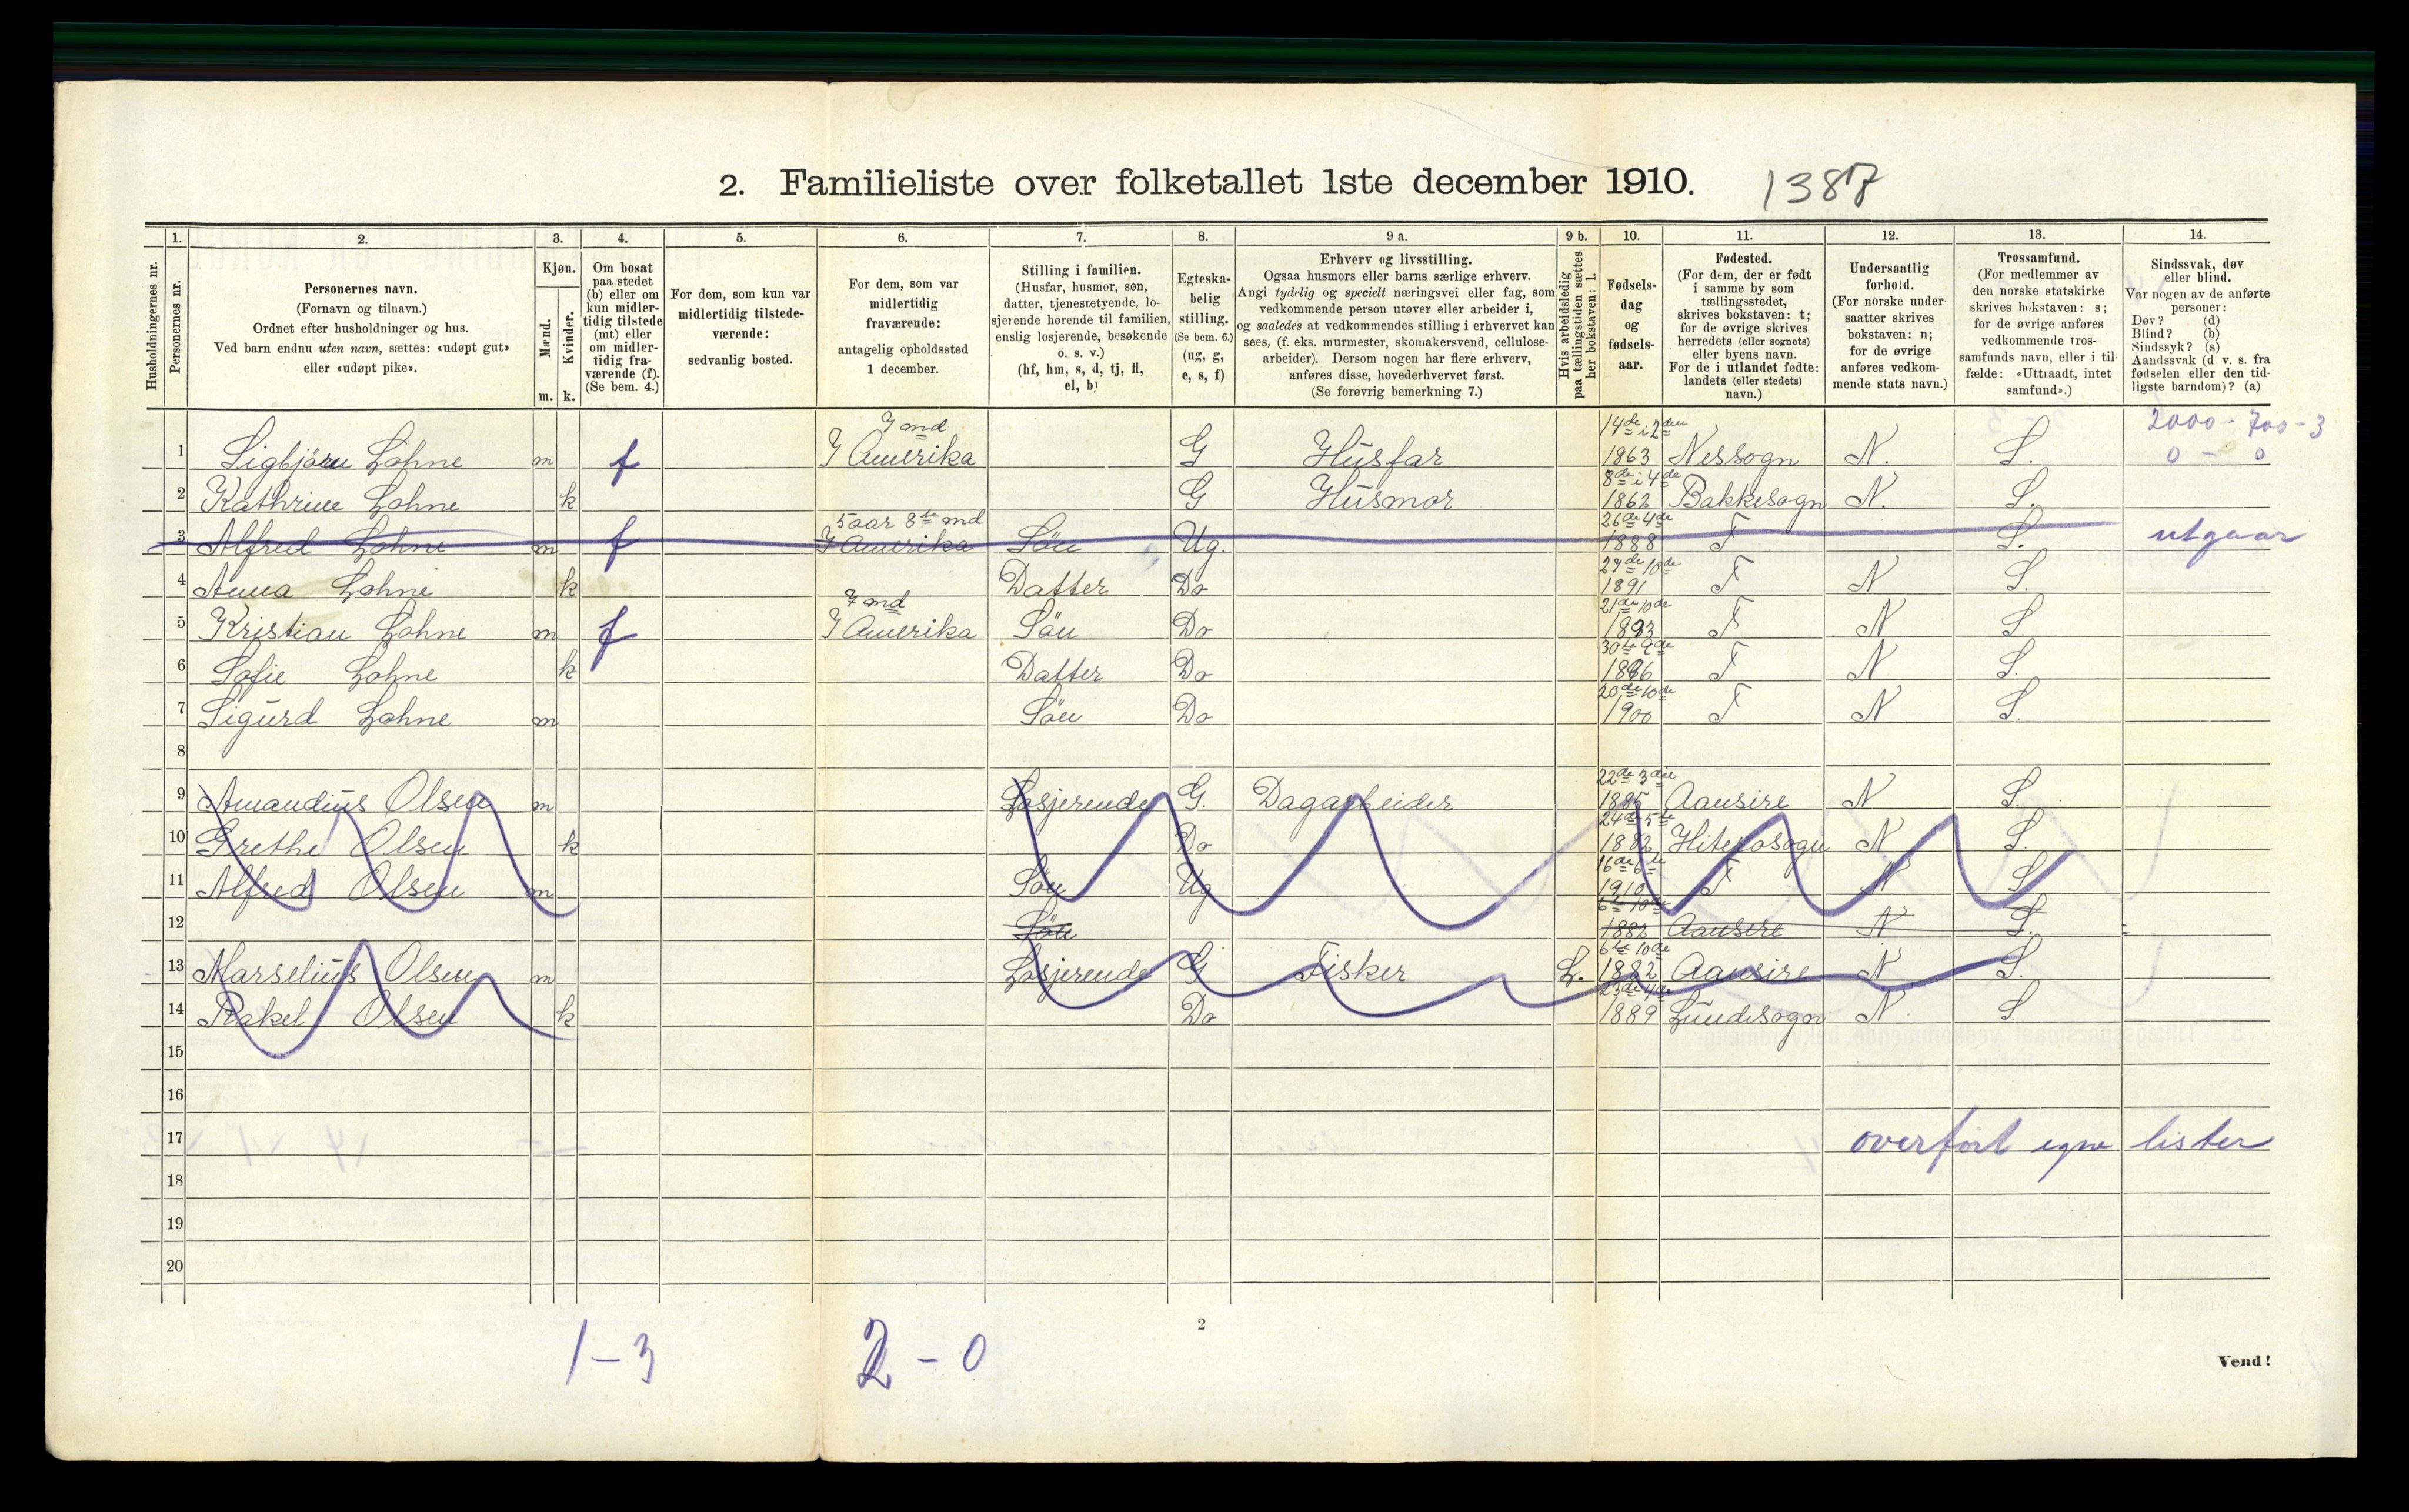 2. Familieliste over folketallet 1ste december 1910. 1387
1. 2. 3. 4. 5. 6. 7. 8. 9 a. 9 b. 10. 11. 12. 13. 14.
Husholdningernes nr.
Personernes nr.
Personernes navn.
(Fornavn og tilnavn.)
Ordnet efter husholdninger og hus.
Ved barn endnu uten navn, sættes: «udøpt gut»
eller «udøpt pike».
Kjøn.
Mænd.
Kvinder.
m. k.
Om bosat
paa stedet
(b) eller om
kun midler-
tidig tilstede
(mt) eller
om midler-
tidig fra-
værende (f).
(Se bem. 4.)
For dem, som kun var
midlertidig tilstede-
værende:
sedvanlig bosted.
For dem, som var
midlertidig
fraværende:
antagelig opholdssted
1 december.
Stilling i familien.
(Husfar, husmor, søn,
datter, tjenestetyende, lo-
sjerende hørende til familien,
enslig losjerende, besøkende
o. s. v.)
(hf, hm, s, d, tj, fl,
el, b)
Egteska-
belig
stilling.
(Se bem. 6.)
(ug, g,
e, s, f)
Erhverv og livsstilling.
Ogsaa husmors eller barns særlige erhverv.
Angi tydelig og specielt næringsvei eller fag, som
vedkommende person utøver eller arbeider i,
og saaledes at vedkommendes stilling i erhvervet kan
sees, (f. eks. murmester, skomakersvend, cellulose-
arbeider). Dersom nogen har flere erhverv,
anføres disse, hovederhvervet først.
(Se forøvrig bemerkning 7.)
Hvis arbeidsledig
paa tællingstiden sættes
her bokstaven: l.
Fødsels-
dag
og
fødsels-
aar.
Fødested.
(For dem, der er født
i samme by som
tællingsstedet,
skrives bokstaven: t;
for de øvrige skrives
herredets (eller sognets)
eller byens navn.
For de i utlandet fødte:
landets (eller stedets)
navn.)
Undersaatlig
forhold.
(For norske under-
saatter skrives
bokstaven: n;
for de øvrige
anføres vedkom-
mende stats navn.)
Trossamfund.
(For medlemmer av
den norske statskirke
skrives bokstaven: s;
for de øvrige anføres
vedkommende tros-
samfunds navn, eller i til-
fælde: «Uttraadt, intet
samfund».)
Sindssvak, døv
eller blind.
Var nogen av de anførte
personer:
Døv? (d)
Blind? (b)
Sindssyk? (s)
Aandssvak (d. v. s. fra
fødselen eller den tid-
ligste barndom)? (a)
7 md 14de i 2den 2000 - 700 - 3
1 Sigbjörn Lohne m f I Amerika G Husfar 1863 Nessogn N. S. 0 - 0
8de i 4de
2 Kathrine Lohne k G Husmor 1862 Bakkesogn N. S.
5 aar 8te md 26de 4de
3 Alfred Lohne m f I Amerika Sön Ug. 1888 F S. utgaar
27de 10de
4 Anna Lohne k Datter Do 1891 F N S.
7 md 21de 10de
5 Kristian Lohne m f I Amerika Sön Do 1893 F N S.
30te 9de
6 Sofie Lohne k Datter Do 1896 F N S.
20de 10de
7 Sigurd Lohne m Sön Do 1900 F N S.
8
22de 3die
9 Amandius Olsen m Losjerende G. Dagarbeider 1885 Aansire N S.
24de 5te
10 Grethe Olsen k Do 1882 Hiterosogn N S.
16de 6te
11 Alfred Olsen m Sön Ug 1910 F N S
6te 10de
12 Sön 1882 Aansire N S.
6te 10de
13 Marselius Olsen m Losjerende G Fisker L. 1882 Aansire N S.
23de 4de
14 Rakel Olsen k Do 1889 Lundesogn N. S.
15
16
17 overført egne lister
18
19
20
1 - 3 2 - 0
2
Vend!